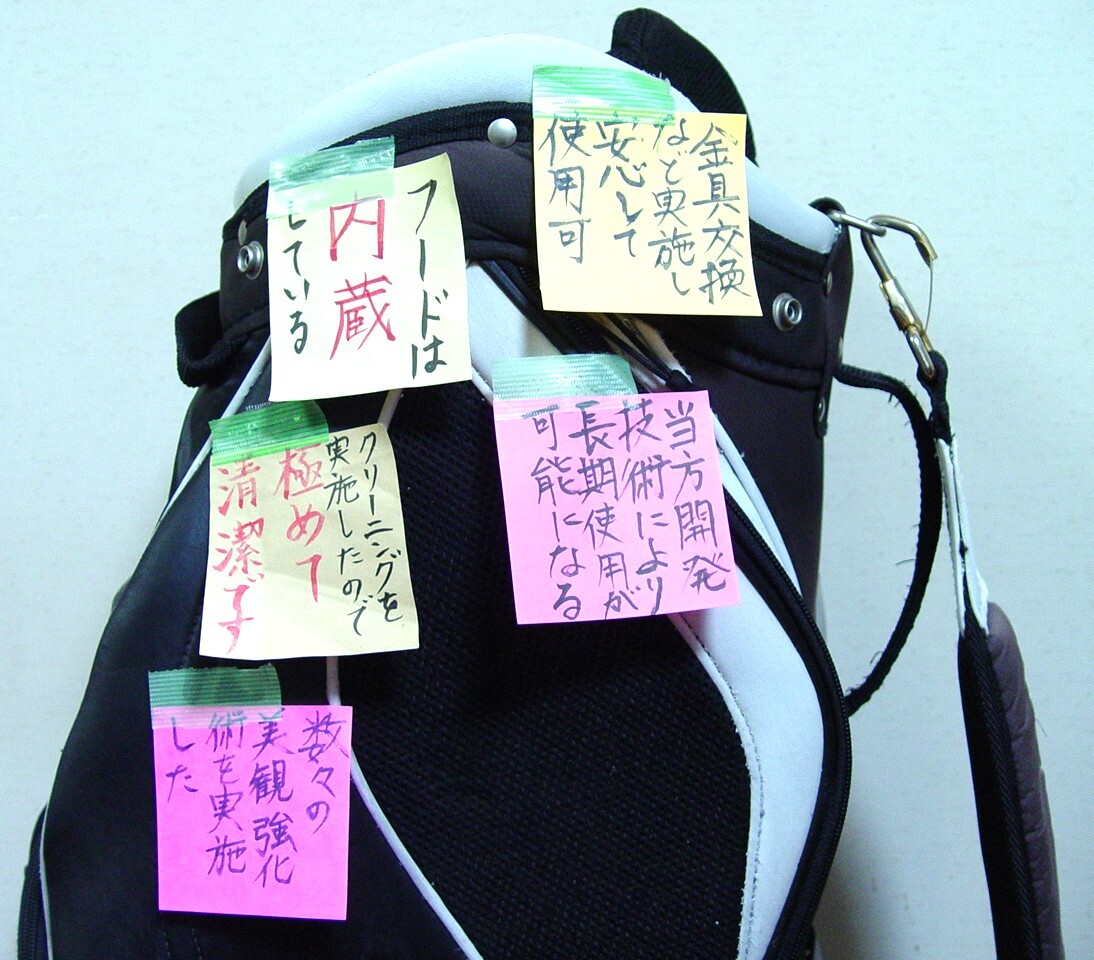 金具交換
など実施し
安心して
使用可
フードは
内蔵
している
当方開発
技術により
長期使用が
可能になる
クリーニングを
実施したので
極めて
清潔です
数々の
美観強化
術を実施
した